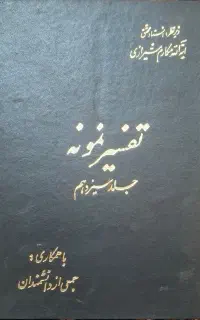 زیر نظر استاد محقق
آیة الله مکارم شیرازی
تفسیر نمونه
جلد سیزدهم
با همکاری:
جمعی از دانشمندان